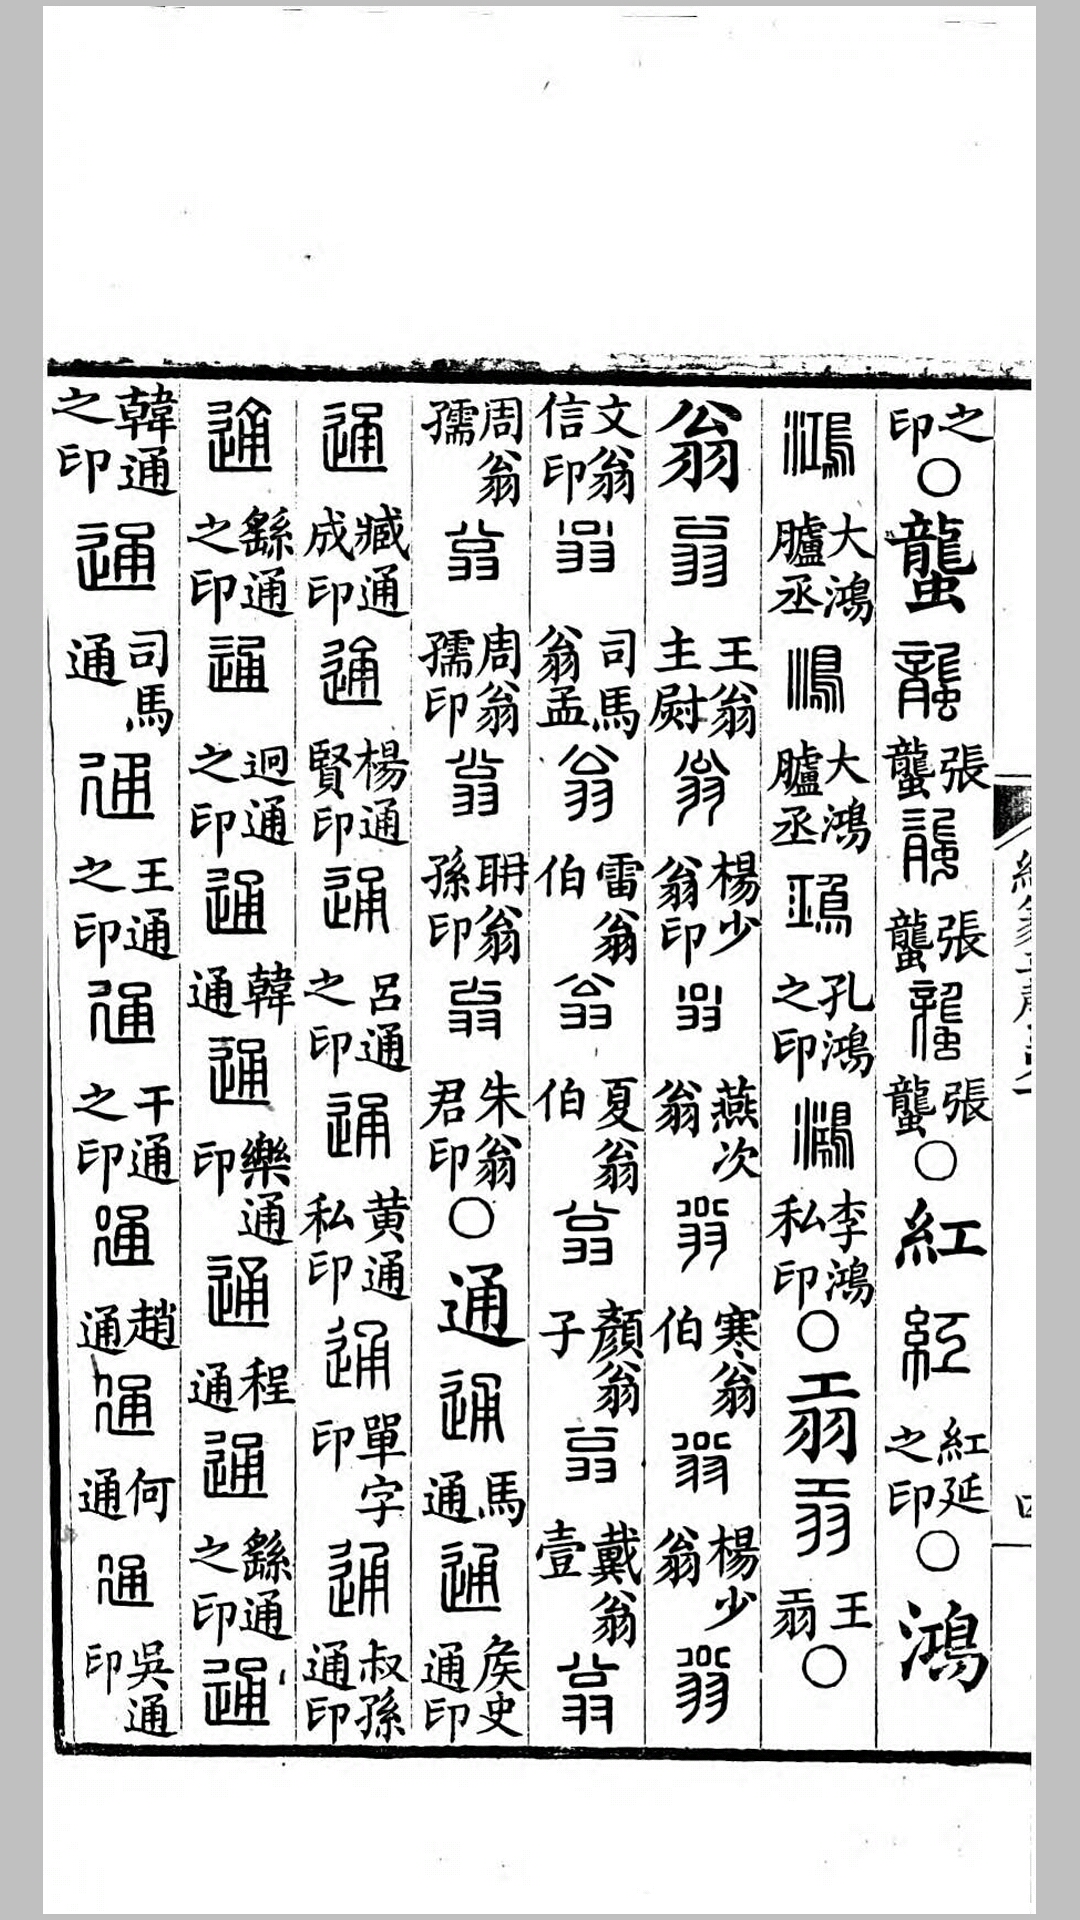 之印○蠪龓張蠪龓張蠪龓張蠪○紅紅紅延之印○鴻
鴻大鴻臚丞鴻大鴻臚丞鴻孔鴻之印鴻李鴻私印○㺋㺋王㺋○
翁翁王翁主尉翁楊少翁印翁燕次翁翁寒翁伯翁楊少翁翁
文翁信印翁司馬翁孟翁雷翁伯翁夏翁伯翁顏翁子翁戴翁壹翁
周翁孺翁周翁孺印翁聃翁孫印翁朱翁君印○通通馬通通矦史通印
通臧通成印通楊通賢印通呂通之印通黄通私印通單字印通叔孫通印
通繇通之印通迥通之印通韓通通樂通印通程通通繇通之印通
韓通之印通司馬通通王通之印通干通之印通趙通通何通通吳通印